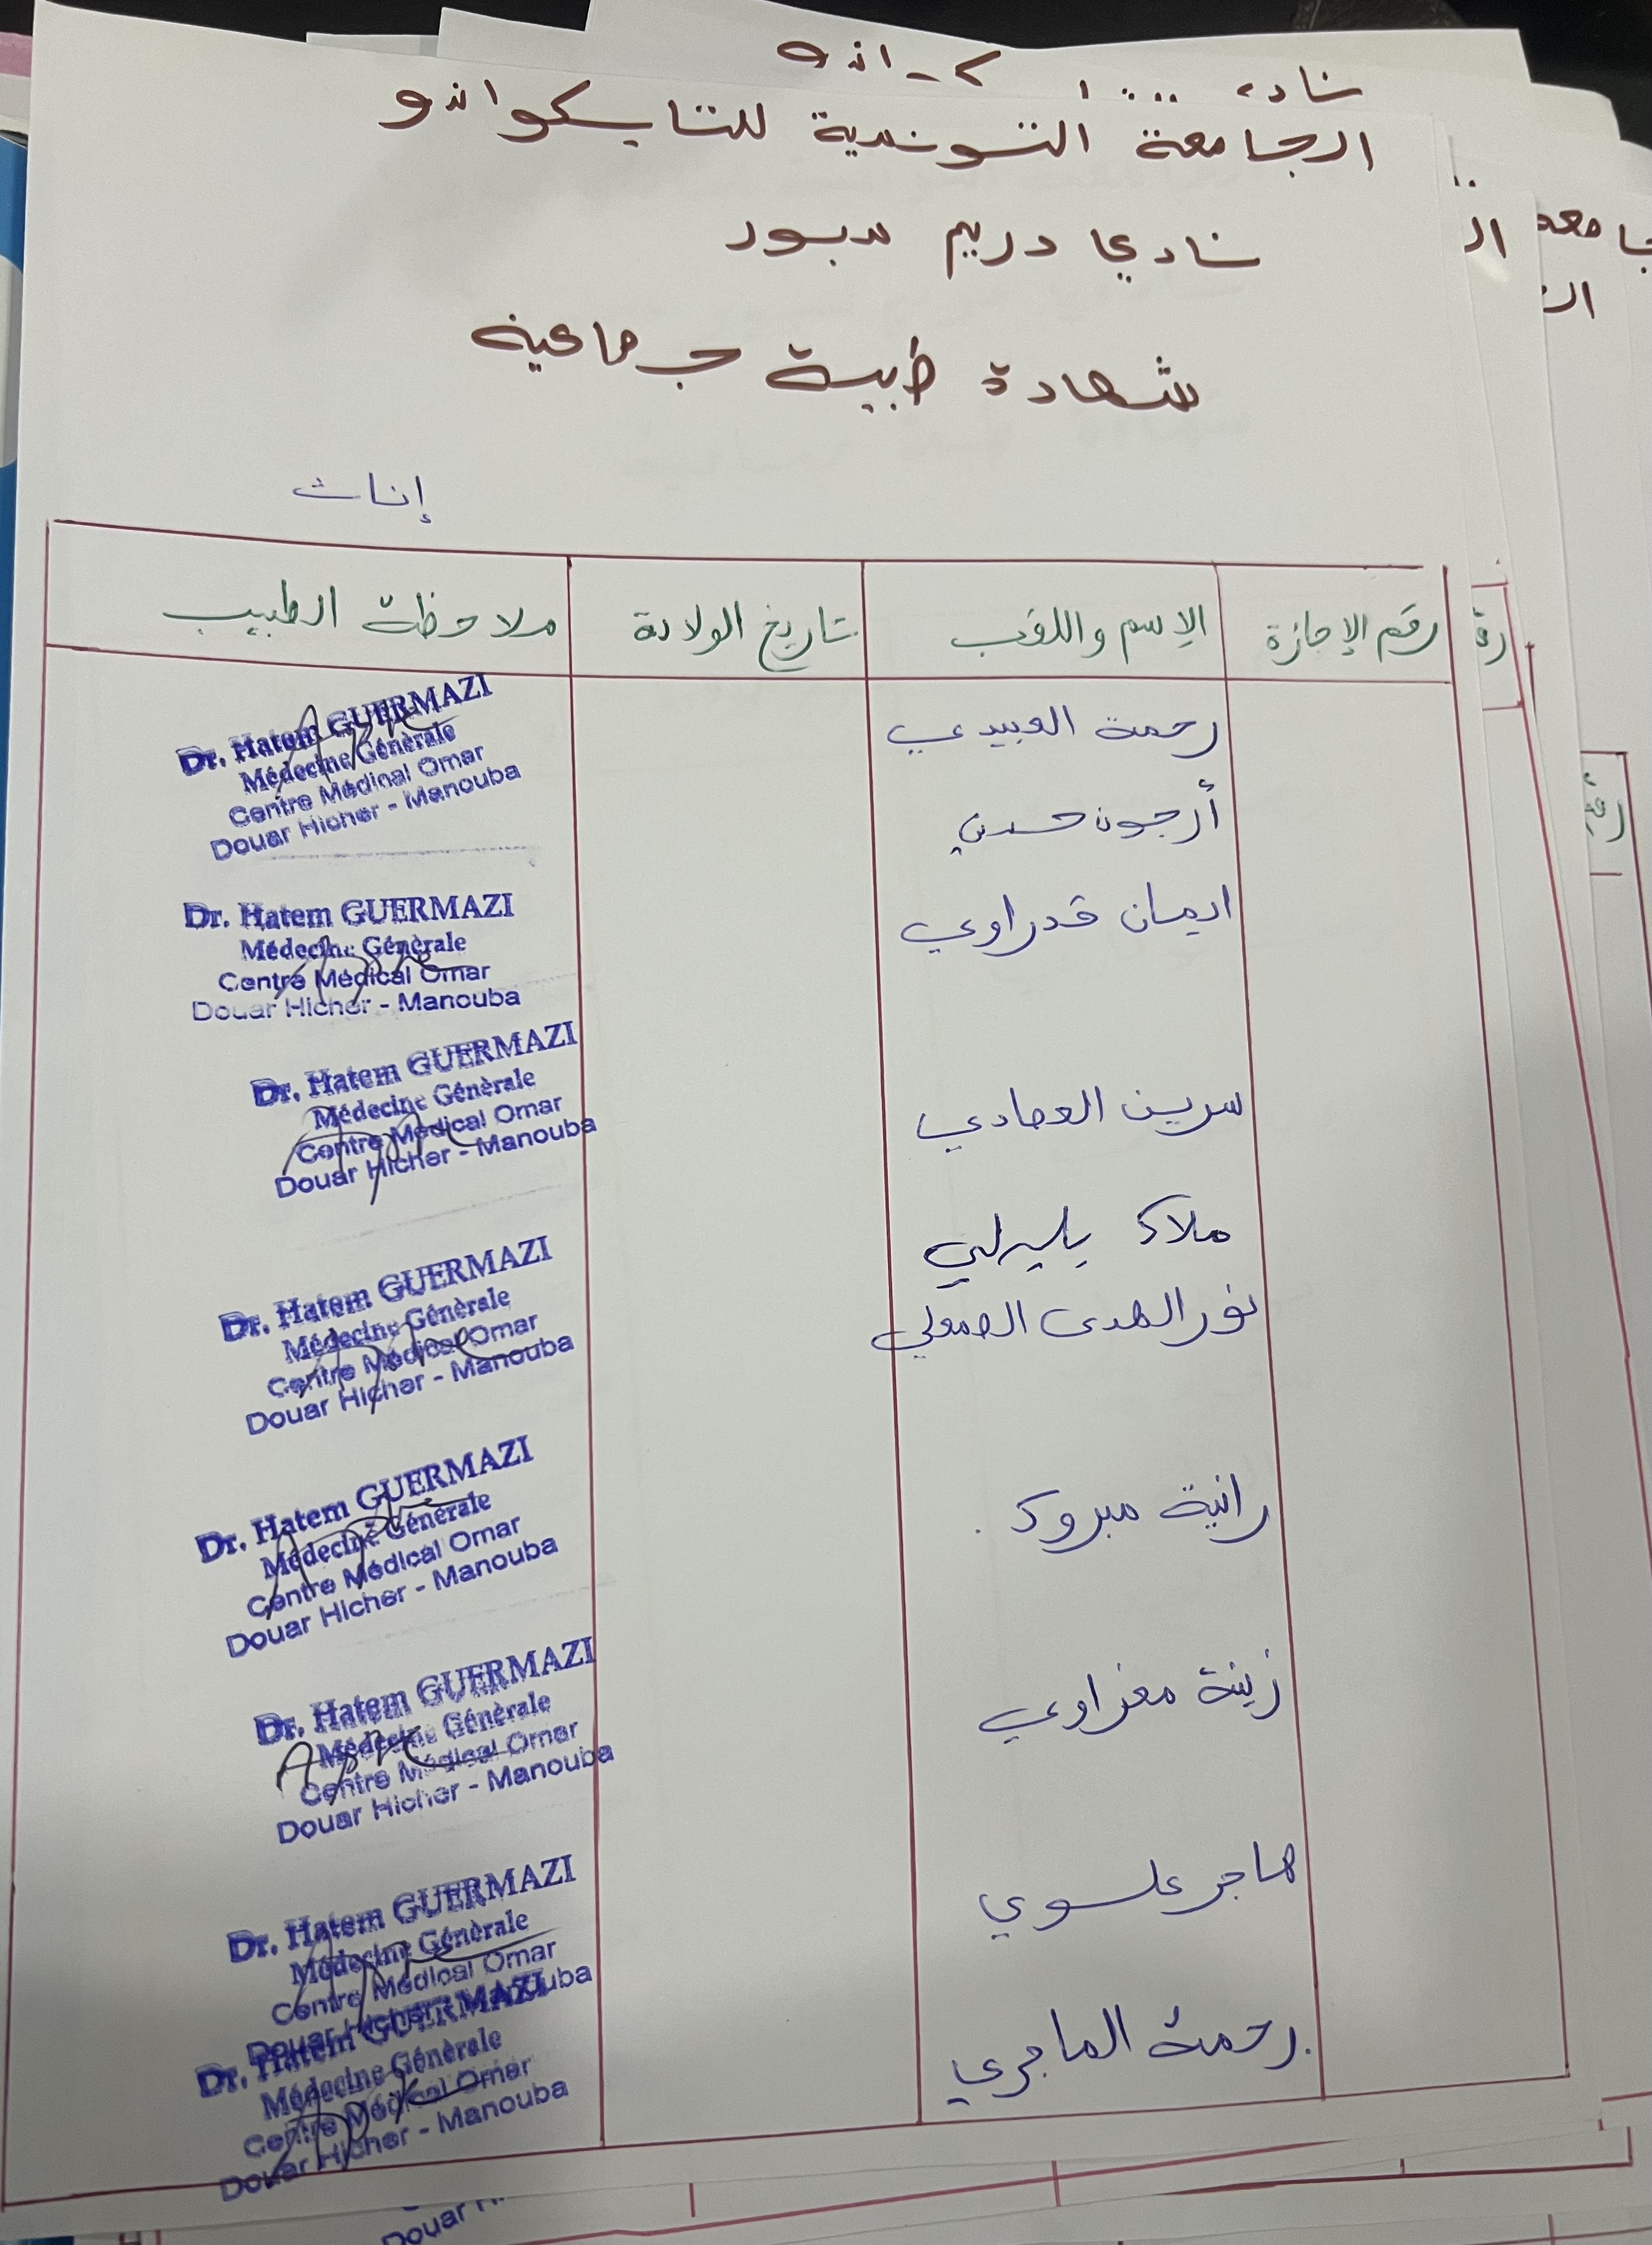 الجامعة التونسية للتايكواندو
نادي دريم سبور
شهادة طبية جماعية
إناث
رقم الإجازة الإسم واللقب تاريخ الولادة ملاحظة الطبيب
رحمة العبيدي
Dr. Hatem GUERMAZI
Médecine Générale
Centre Médical Omar
Douar Hicher - Manouba
أرجون حسني
ايمان قدراوي
Dr. Hatem GUERMAZI
Médecine Générale
Centre Médical Omar
Douar Hicher - Manouba
سرين العمادي
Dr. Hatem GUERMAZI
Médecine Générale
Centre Médical Omar
Douar Hicher - Manouba
ملاك
نور الهدى
Dr. Hatem GUERMAZI
Médecine Générale
Centre Médical Omar
Douar Hicher - Manouba
رانية مبروك
Dr. Hatem GUERMAZI
Médecine Générale
Centre Médical Omar
Douar Hicher - Manouba
زينة مغزاوي
Dr. Hatem GUERMAZI
Médecine Générale
Centre Médical Omar
Douar Hicher - Manouba
هاجر علسوي
Dr. Hatem GUERMAZI
Médecine Générale
Centre Médical Omar
Douar Hicher - Manouba
رحمة الماجري
Dr. Hatem GUERMAZI
Médecine Générale
Centre Médical Omar
Douar Hicher - Manouba
Douar